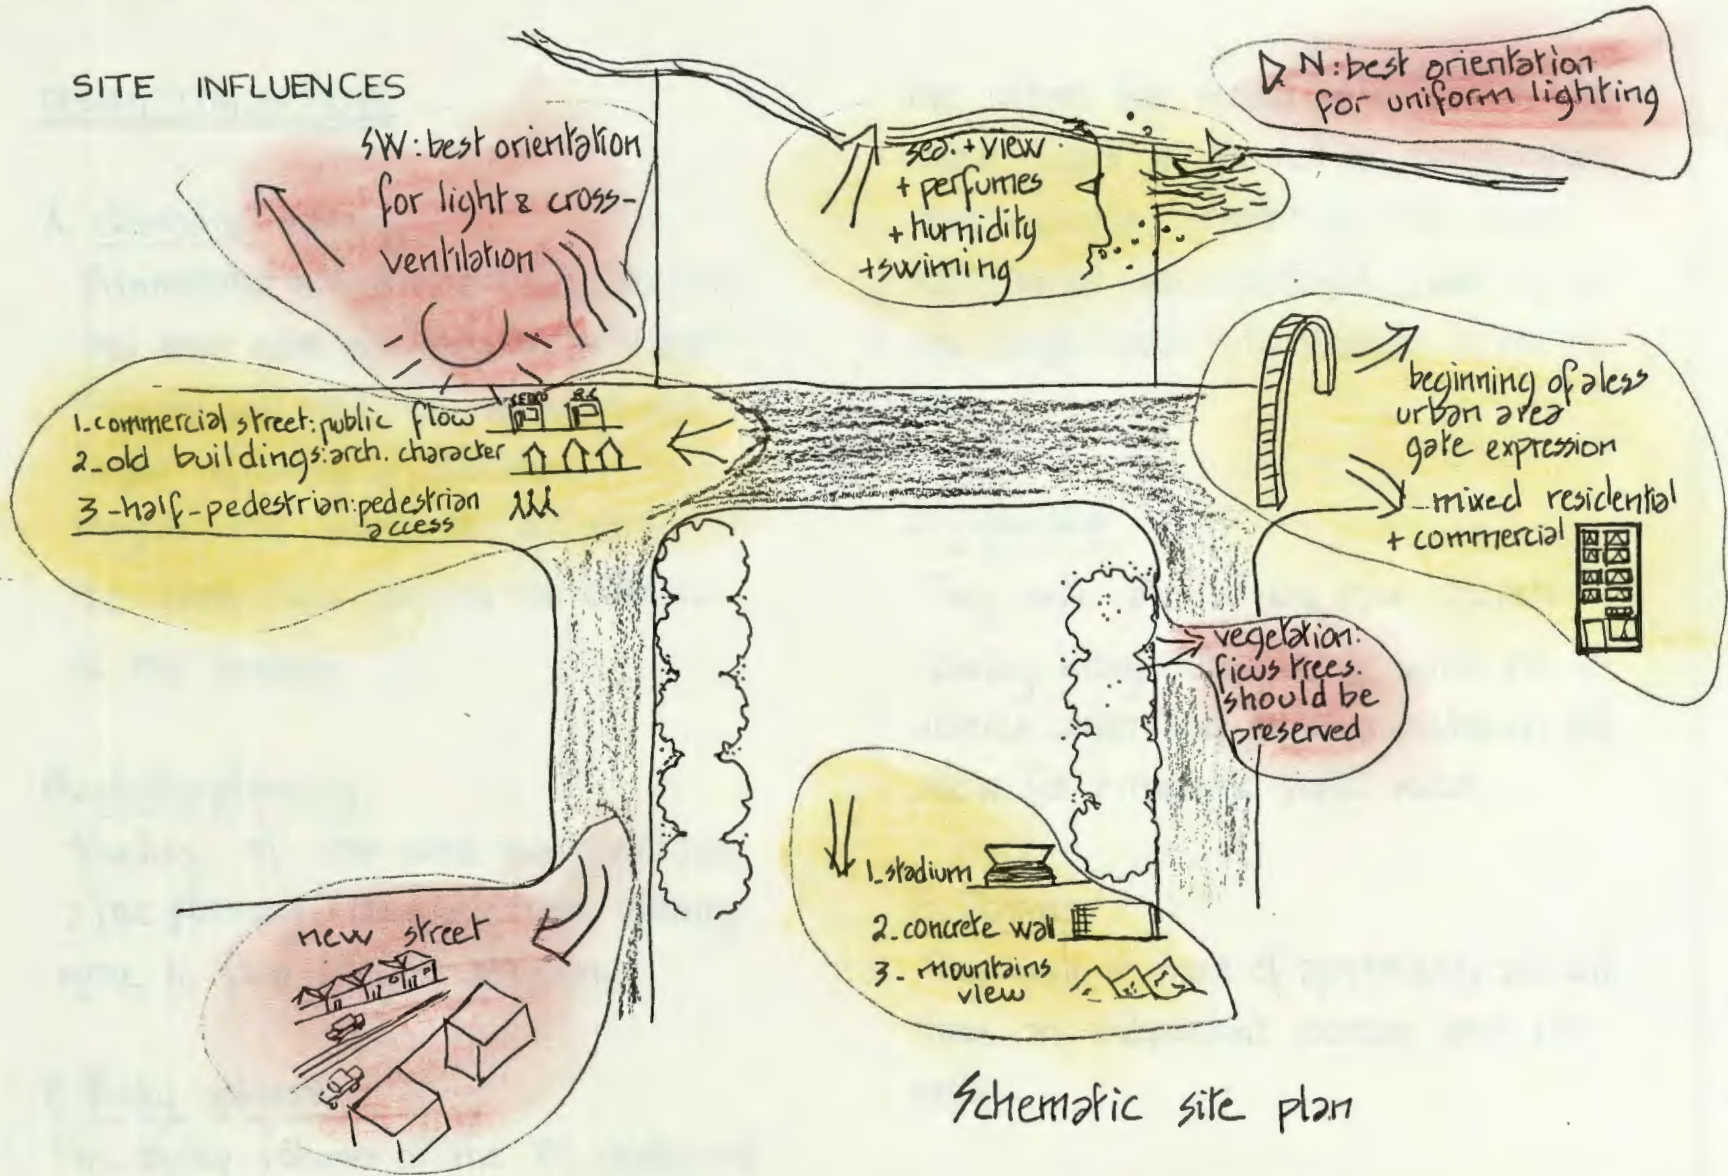 SITE INFLUENCES
SW: best orientation
for light & cross-
ventilation
sea. + view
+ perfumes
+ humidity
+swiming
N: best orientation
for uniform lighting
1_commercial street: public flow
2_old buildings: arch. character
3_half_pedestrian: pedestrian
access
beginning of a less
urban area
gate expression
_mixed residential
+ commercial
vegetation:
ficus trees.
should be
preserved
new street
1_stadium
2_concrete wall
3_ mountains
view
Schematic site plan